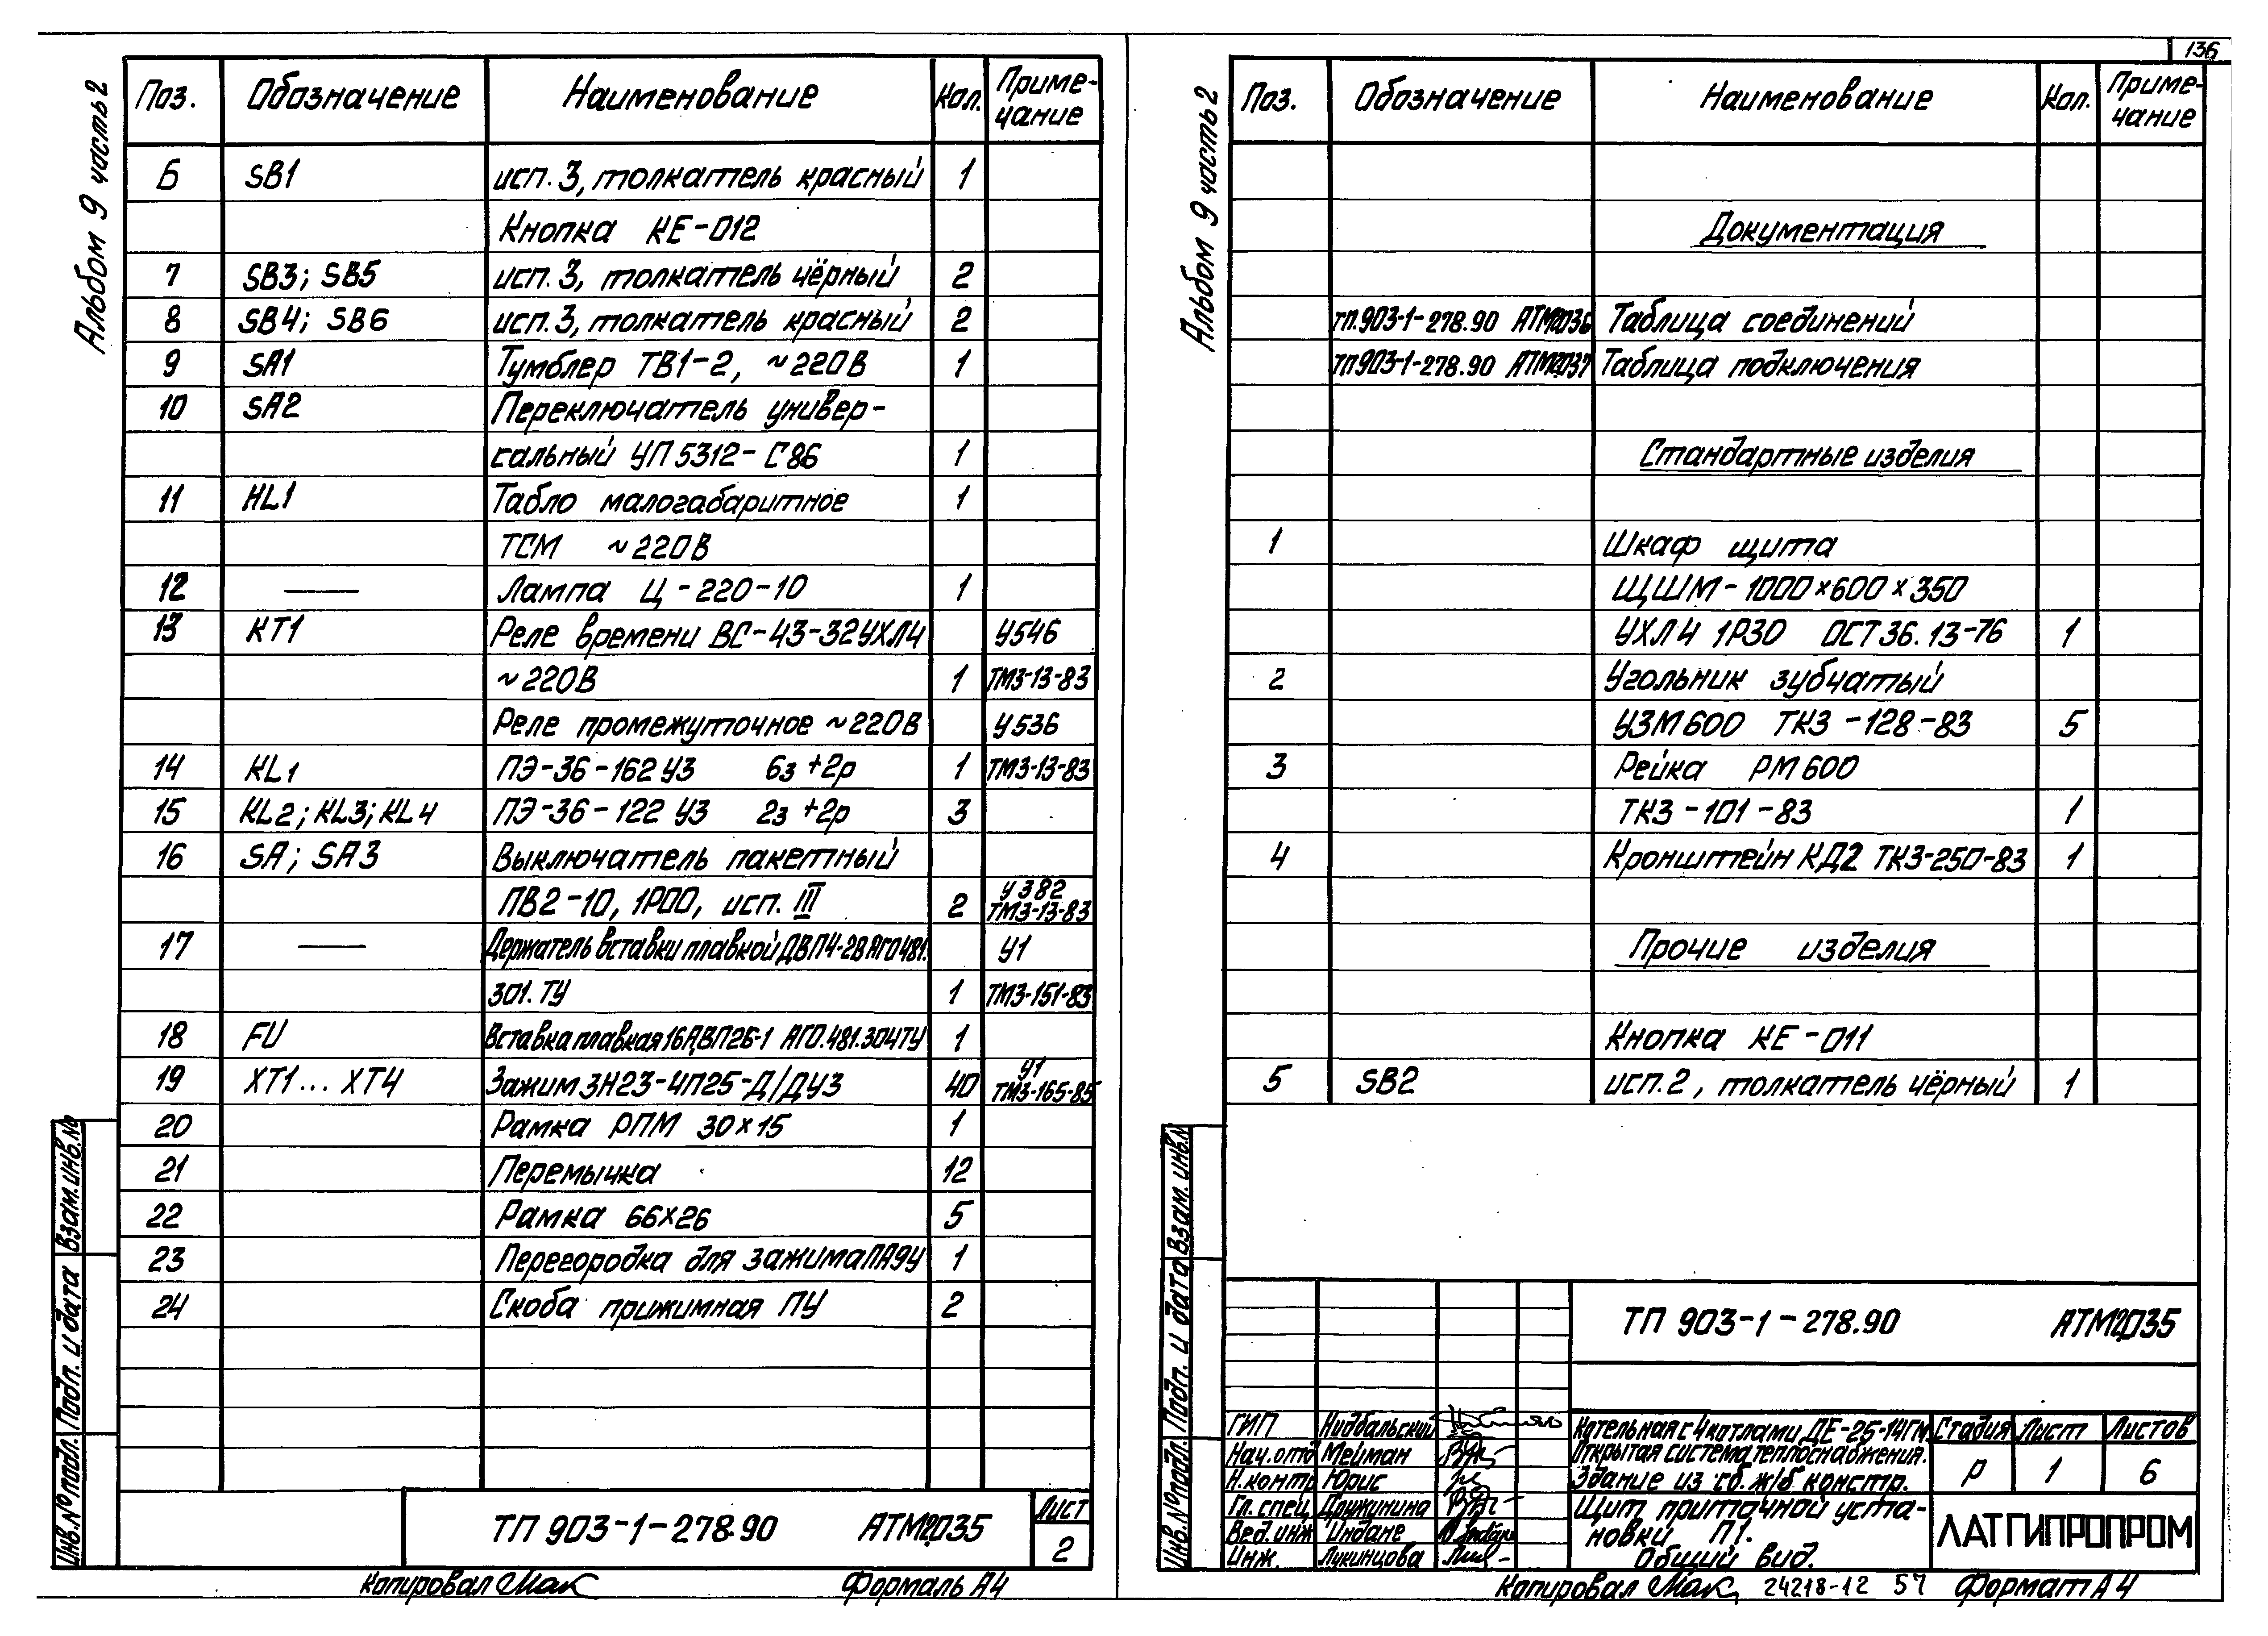 136
Альбом 9 часть 2
Поз. Обозначение Наименование Кол. Приме-
чание
6 SB1 исп. 3, толкатель красный 1
Кнопка КЕ-012
7 SB3; SB5 исп. 3, толкатель чёрный 2
8 SB4; SB6 исп. 3, толкатель красный 2
9 SA1 Тумблер ТВ1-2, ~220В 1
10 SA2 Переключатель универ-
сальный УП 5312-С86 1
11 HL1 Табло малогабаритное 1
ТСМ ~220В
12 — Лампа Ц-220-10 1
13 КТ1 Реле времени ВС-43-32УХЛ4 У546
~220В 1 ТМ3-13-83
Реле промежуточное ~220В У536
14 KL1 ПЭ-36-162 У3 6з+2р 1 ТМ3-13-83
15 KL2; KL3; KL4 ПЭ-36-122 У3 2з+2р 3
16 SA; SA3 Выключатель пакетный
ПВ2-10, 1Р00, исп. III 2 У382
ТМ3-13-83
17 — Держатель вставки плавкой ДВП4-2В АГ0481. У1
301.ТУ 1 ТМ3-151-83
18 FU Вставка плавкая 16А,ВП2Б-1 АГО.481.304ТУ 1
19 ХТ1... ХТ4 Зажим ЗН23-4П25-Д/ДУ3 40 У1
ТМ3-165-85
20 Рамка РПМ 30×15 1
21 Перемычка 12
22 Рамка 66×26 5
23 Перегородка для зажима ПА9У 1
24 Скоба прижимная ПУ 2
Инв.№ подл. Подп. и дата Взам.инв.№
ТП 903-1-278.90 АТМ2.035
Лист
2
Копировал Мак Формаль А4
Альбом 9 часть 2
Поз. Обозначение Наименование Кол. Приме-
чание
Документация
ТП.903-1-278.90 АТМ2.036 Таблица соединений
ТП 903-1-278.90 АТМ2.037 Таблица подключения
Стандартные изделия
1 Шкаф щита
ЩШМ-1000×600×350
УХЛ4 1Р30 ОСТ 36.13-76 1
2 Угольник зубчатый
УЗМ600 ТК3-128-83 5
3 Рейка РМ600
ТК3-101-83 1
4 Кронштейн КД2 ТК3-250-83 1
Прочие изделия
Кнопка КЕ-011
5 SB2 исп. 2, толкатель чёрный 1
Инв.№ подл. Подп. и дата Взам. инв.№
ТП 903-1-278.90 АТМ2.035
ГИП Нидбальский
Нач.отд Мейман
Н.контр Юрис
Гл. спец. Дружинина
Вед.инж Индане
Инж. Лукинцова
Котельная с 4 котлами ДЕ-25-14ГМ
Открытая система теплоснабжения.
Здание из сб. ж/б констр.
Стадия Лист Листов
Р 1 6
Щит приточной уста-
новки П1.
Общий вид.
ЛАТГИПРОПРОМ
Копировал Мак 24218-12 57 Формат А4